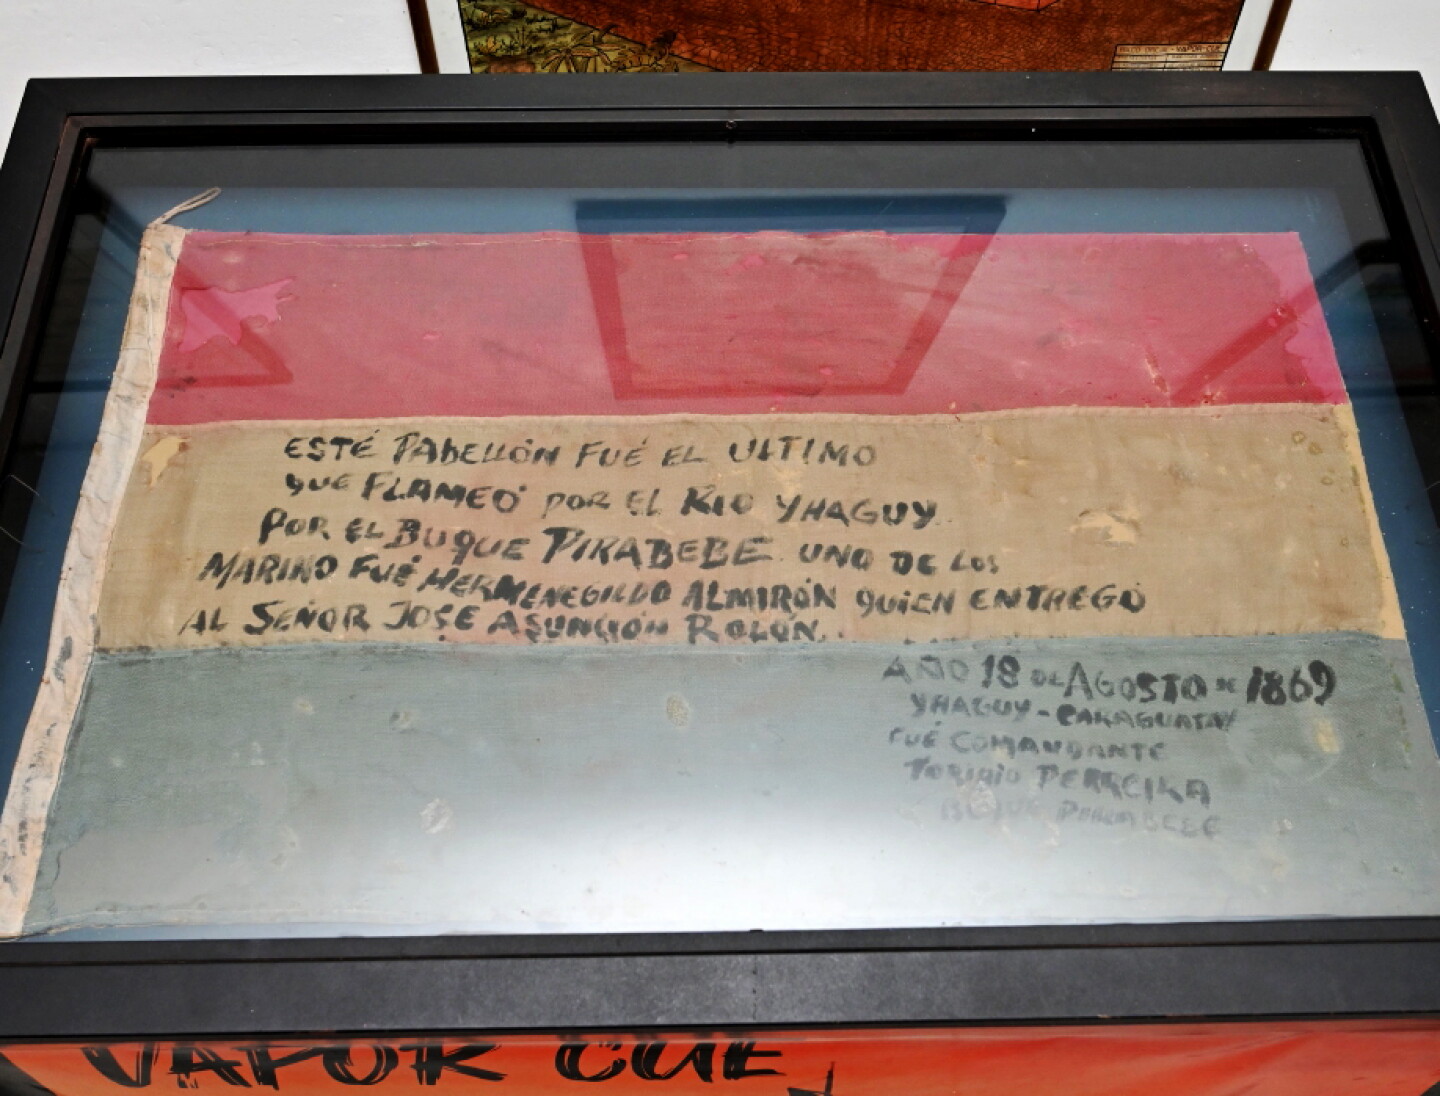 ESTÉ PABELLÓN FUÉ EL ULTIMO
QUE FLAMEO POR EL RIO YHAGUY
POR EL BUQUE PIRABEBE UNO DE LOS
MARINO FUÉ HERMENEGILDO ALMIRÓN QUIEN ENTREGÓ
AL SEÑOR JOSE ASUNCIÓN ROLÓN.
AÑO 18 DE AGOSTO DE 1869
YHAGUY - CARAGUATAY
FUÉ COMANDANTE
TORIBIO PERREIRA
BUQUE PIRABEBE
VAPOR CUE